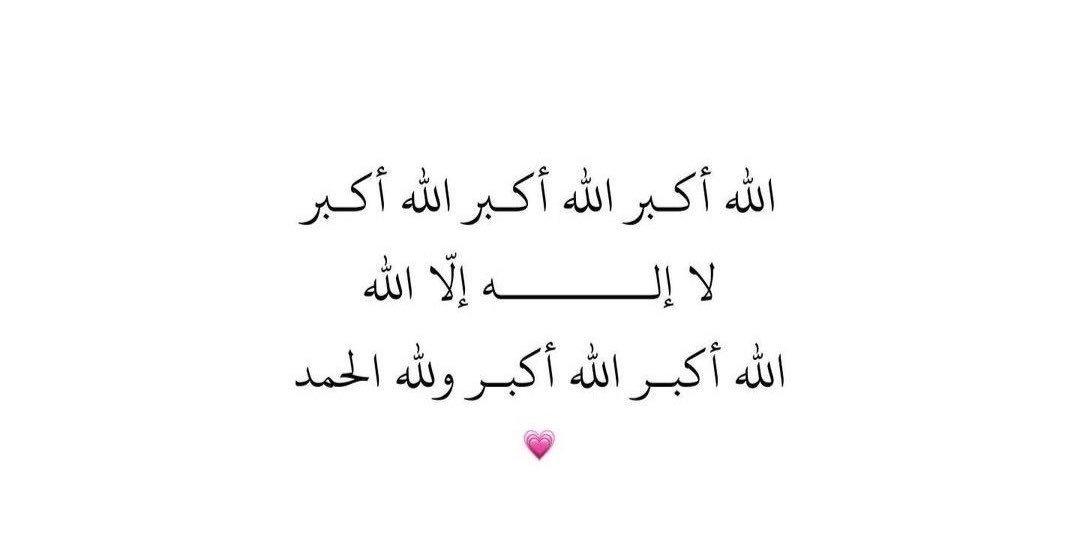 الله أكـبر الله أكـبر الله أكـبر
لا إلــــــــــه إلّا الله
الله أكبـر الله أكبـر ولله الحمد
💗